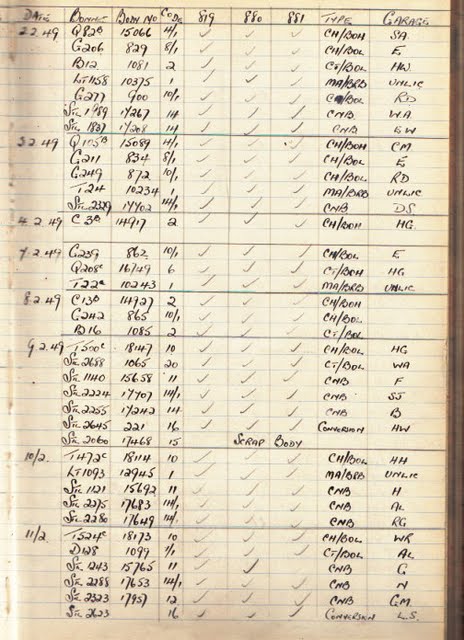 DATE BONNET BODY NO CODE 819 880 881 TYPE GARAGE
2.2.49 Q82B 15066 4/1 ✓ ✓ ✓ CH/BOH SA
G206 829 8/1 ✓ ✓ ✓ CH/BOL E
B12 1081 2 ✓ ✓ ✓ CT/BOL HW
LT1158 10375 1 ✓ ✓ ✓ MA/BRD UNLIC
G277 900 10/1 ✓ ✓ ✓ CH/BOL RD
STL 1989 17267 14 ✓ ✓ ✓ CNB WA
STL 1827 17208 14 ✓ ✓ ✓ CNB EW
3.2.49 Q105B 15089 4/1 ✓ ✓ ✓ CH/BOH CM
G211 834 8/1 ✓ ✓ ✓ CH/BOL E
G249 872 10/1 ✓ ✓ ✓ CH/BOL RD
T24 10234 1 ✓ ✓ ✓ MA/BRD UNLIC
STL 2329 17702 14/1 ✓ ✓ ✓ CNB DS
4.2.49 C3B 14917 2 ✓ ✓ ✓ CH/BOH HG
7.2.49 G239 862 10/1 ✓ ✓ ✓ CH/BOL E
Q208C 16749 6 ✓ ✓ ✓ CT/BOH HG
T22C 10243 1 ✓ ✓ ✓ MA/BRD UNLIC
8.2.49 C13B 14927 2 ✓ ✓ ✓ CH/BOH
G242 865 10/1 ✓ ✓ ✓ CH/BOL
B16 1085 2 ✓ ✓ ✓ CT/BOL
9.2.49 T500C 18147 10 ✓ ✓ ✓ CH/BOL HG
STL 2658 1065 20 ✓ ✓ ✓ CT/BOL WA
STL 1140 15658 11 ✓ ✓ ✓ CNB F
STL 2224 17707 14/1 ✓ ✓ ✓ CNB SJ
STL 2255 17242 14 ✓ ✓ ✓ CNB B
STL 2645 221 16 ✓ ✓ ✓ CONVERSION HW
STL 2060 17468 15 SCRAP BODY
10/2. T472C 18114 10 ✓ ✓ ✓ CH/BOL HH
LT1093 12945 1 ✓ ✓ ✓ MA/BRD UNLIC
STL 1121 15692 11 ✓ ✓ ✓ CNB H
STL 2275 17683 14/1 ✓ ✓ ✓ CNB AL
STL 2280 17649 14/1 ✓ ✓ ✓ CNB RG
11/2. T524C 18173 10 ✓ ✓ ✓ CH/BOL WR
D128 1099 7/1 ✓ ✓ ✓ CT/BOL AL
STL 1243 15765 11 ✓ ✓ ✓ CNB G
STL 2288 17653 14/1 ✓ ✓ ✓ CNB N
STL 2323 17957 12 ✓ ✓ ✓ CNB GM
STL 2623 16 ✓ ✓ ✓ CONVERSION L.S.